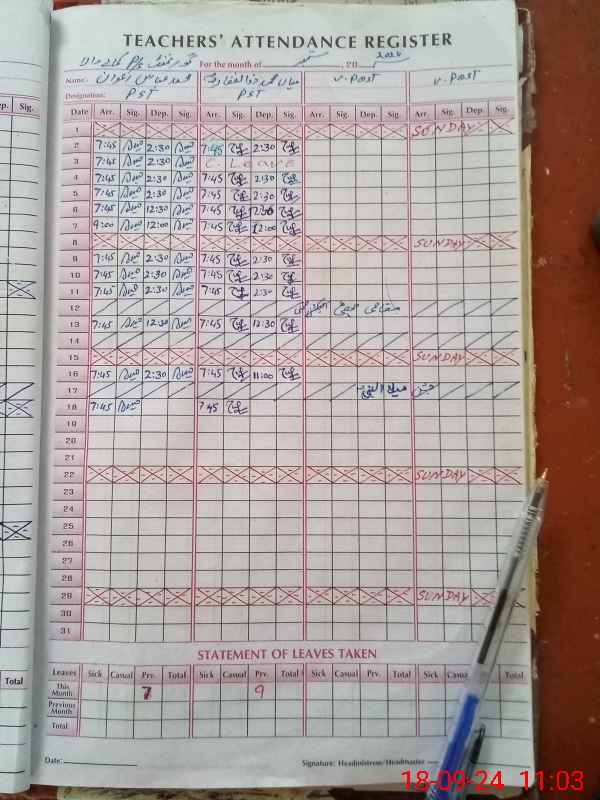 TEACHERS' ATTENDANCE REGISTER
For the month of ستمبر 20 2024
Name: محمد عباس اعوان V. POST V. POST
Designation: PST PST
Date Arr. Sig. Dep. Sig. Arr. Sig. Dep. Sig. Arr. Sig. Dep. Sig. Arr. Sig. Dep. Sig.
ep. Sig.
1 SUNDAY
2 7:45 2:30 7:45 2:30
3 7:45 2:30 C. Leave
4 7:45 2:30 7:45 2:30
5 7:45 2:30 7:45 2:30
6 7:45 12:30 7:45 12:30
7 9:00 12:00 7:45 12:00
8 SUNDAY
9 7:45 2:30 7:45 2:30
10 7:45 2:30 7:45 2:30
11 7:45 2:30 7:45 2:30
12 مقامی چھٹی
13 7:45 12:30 7:45 12:30
14
15 SUNDAY
16 7:45 2:30 7:45 11:00
17 جشن میلاد النبی
18 7:45 7:45
19
20
21
22 SUNDAY
23
24
25
26
27
28
29 SUNDAY
30
31
STATEMENT OF LEAVES TAKEN
Leaves Sick Casual Prv. Total Sick Casual Prv. Total Sick Casual Prv. Total Sick Casual Prv. Total
Total
This Month 7 9
Previous Month
Total
Total
Date: Signature: Headmistress/Headmaster
18-09-24 11:03